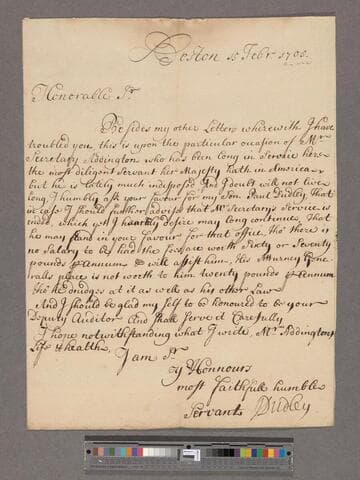 Boston 15 Febr. 1708.
Honorable Sr.
Besides my other Letters wherewith I have
troubled you, this is upon the particular occasion of Mr.
Secretary Addington who has been long in Service here
the most diligent Servant her Majesty hath in America
but he is lately much indisposed And I doubt will not live
long, I humbly ask your favour for my Son Paul Dudley that
in case I should further advise that Mr. Secretarys Service is
ended, which yet I heartily desire may long continue, That
he may stand in your favour for that office, tho there is
no Salary to be had, the ffees are worth Sixty or Seventy
pounds p Annum & will assist him, His Attorney Gene-
ralls place is not worth to him twenty pounds p Annum
tho he drudges at it as well as his other Law
And I should be glad my self to be honoured to be your
Deputy Auditor And Shall Serve it Carefully
I hope notwithstanding what I write, Mr. Addingtons
Life & health.
I am Sr.
yr Honnours
most faithfull humble
Servant JDudley